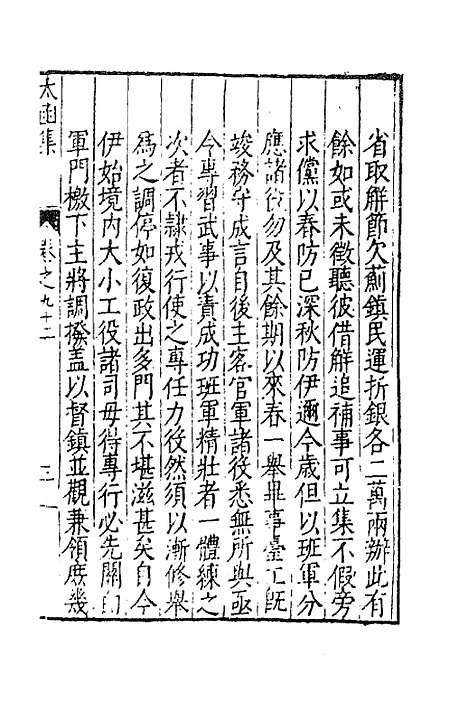 省取解節欠薊鎮民運折銀各二萬兩辦此有
餘如或未徵聽彼借解追補事可立集不假旁
求儻以春防已深秋防伊邇今歲但以班軍分
應諸役勿及其餘期以來春一舉畢事臺工既
竣務守成言自後主客官軍諸役悉無所與亟
令專習武事以責成功班軍精壯者一體練之
次者不隷戎行使之專任力役然須以漸修舉
為之調停如復政出多門其不堪滋甚矣自今
伊始境內大小工役諸司毋得專行必先關白
軍門檄下主將調撥盖以督鎮並觀兼領庶幾
太函集
卷之九十二
三